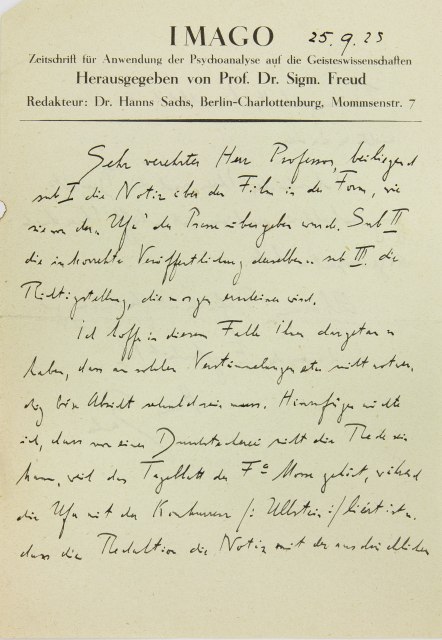 IMAGO 25.9.25
Zeitschrift für Anwendung der Psychoanalyse auf die Geisteswissenschaften
Herausgegeben von Prof. Dr. Sigm. Freud
Redakteur: Dr. Hanns Sachs, Berlin-Charlottenburg, Mommsenstr. 7
Sehr verehrter Herr Professor, beiliegend
sub I die Notiz über den Film in der Form, wie
sie von der „Ufa" der Presse übergeben wurde. Sub II
die inkorrekte Veröffentlichung derselben sub III die
Richtigstellung, die morgen erscheinen wird.
Ich hoffe in diesem Falle Ihnen dargetan zu
haben, dass an solchen Verstümmelungen etc. nicht notwen-
dig böse Absicht schuld sein muss. Hinzufügen möchte
ich, dass von einer Druckerei nicht die Rede sein
kann, weil das Tageblatt der Fa Mosse gehört, während
die Ufa mit der Konkurrenz /: Ullstein :/ liiert ist u.
dass die Redaktion die Notiz mit der ausdrücklichen